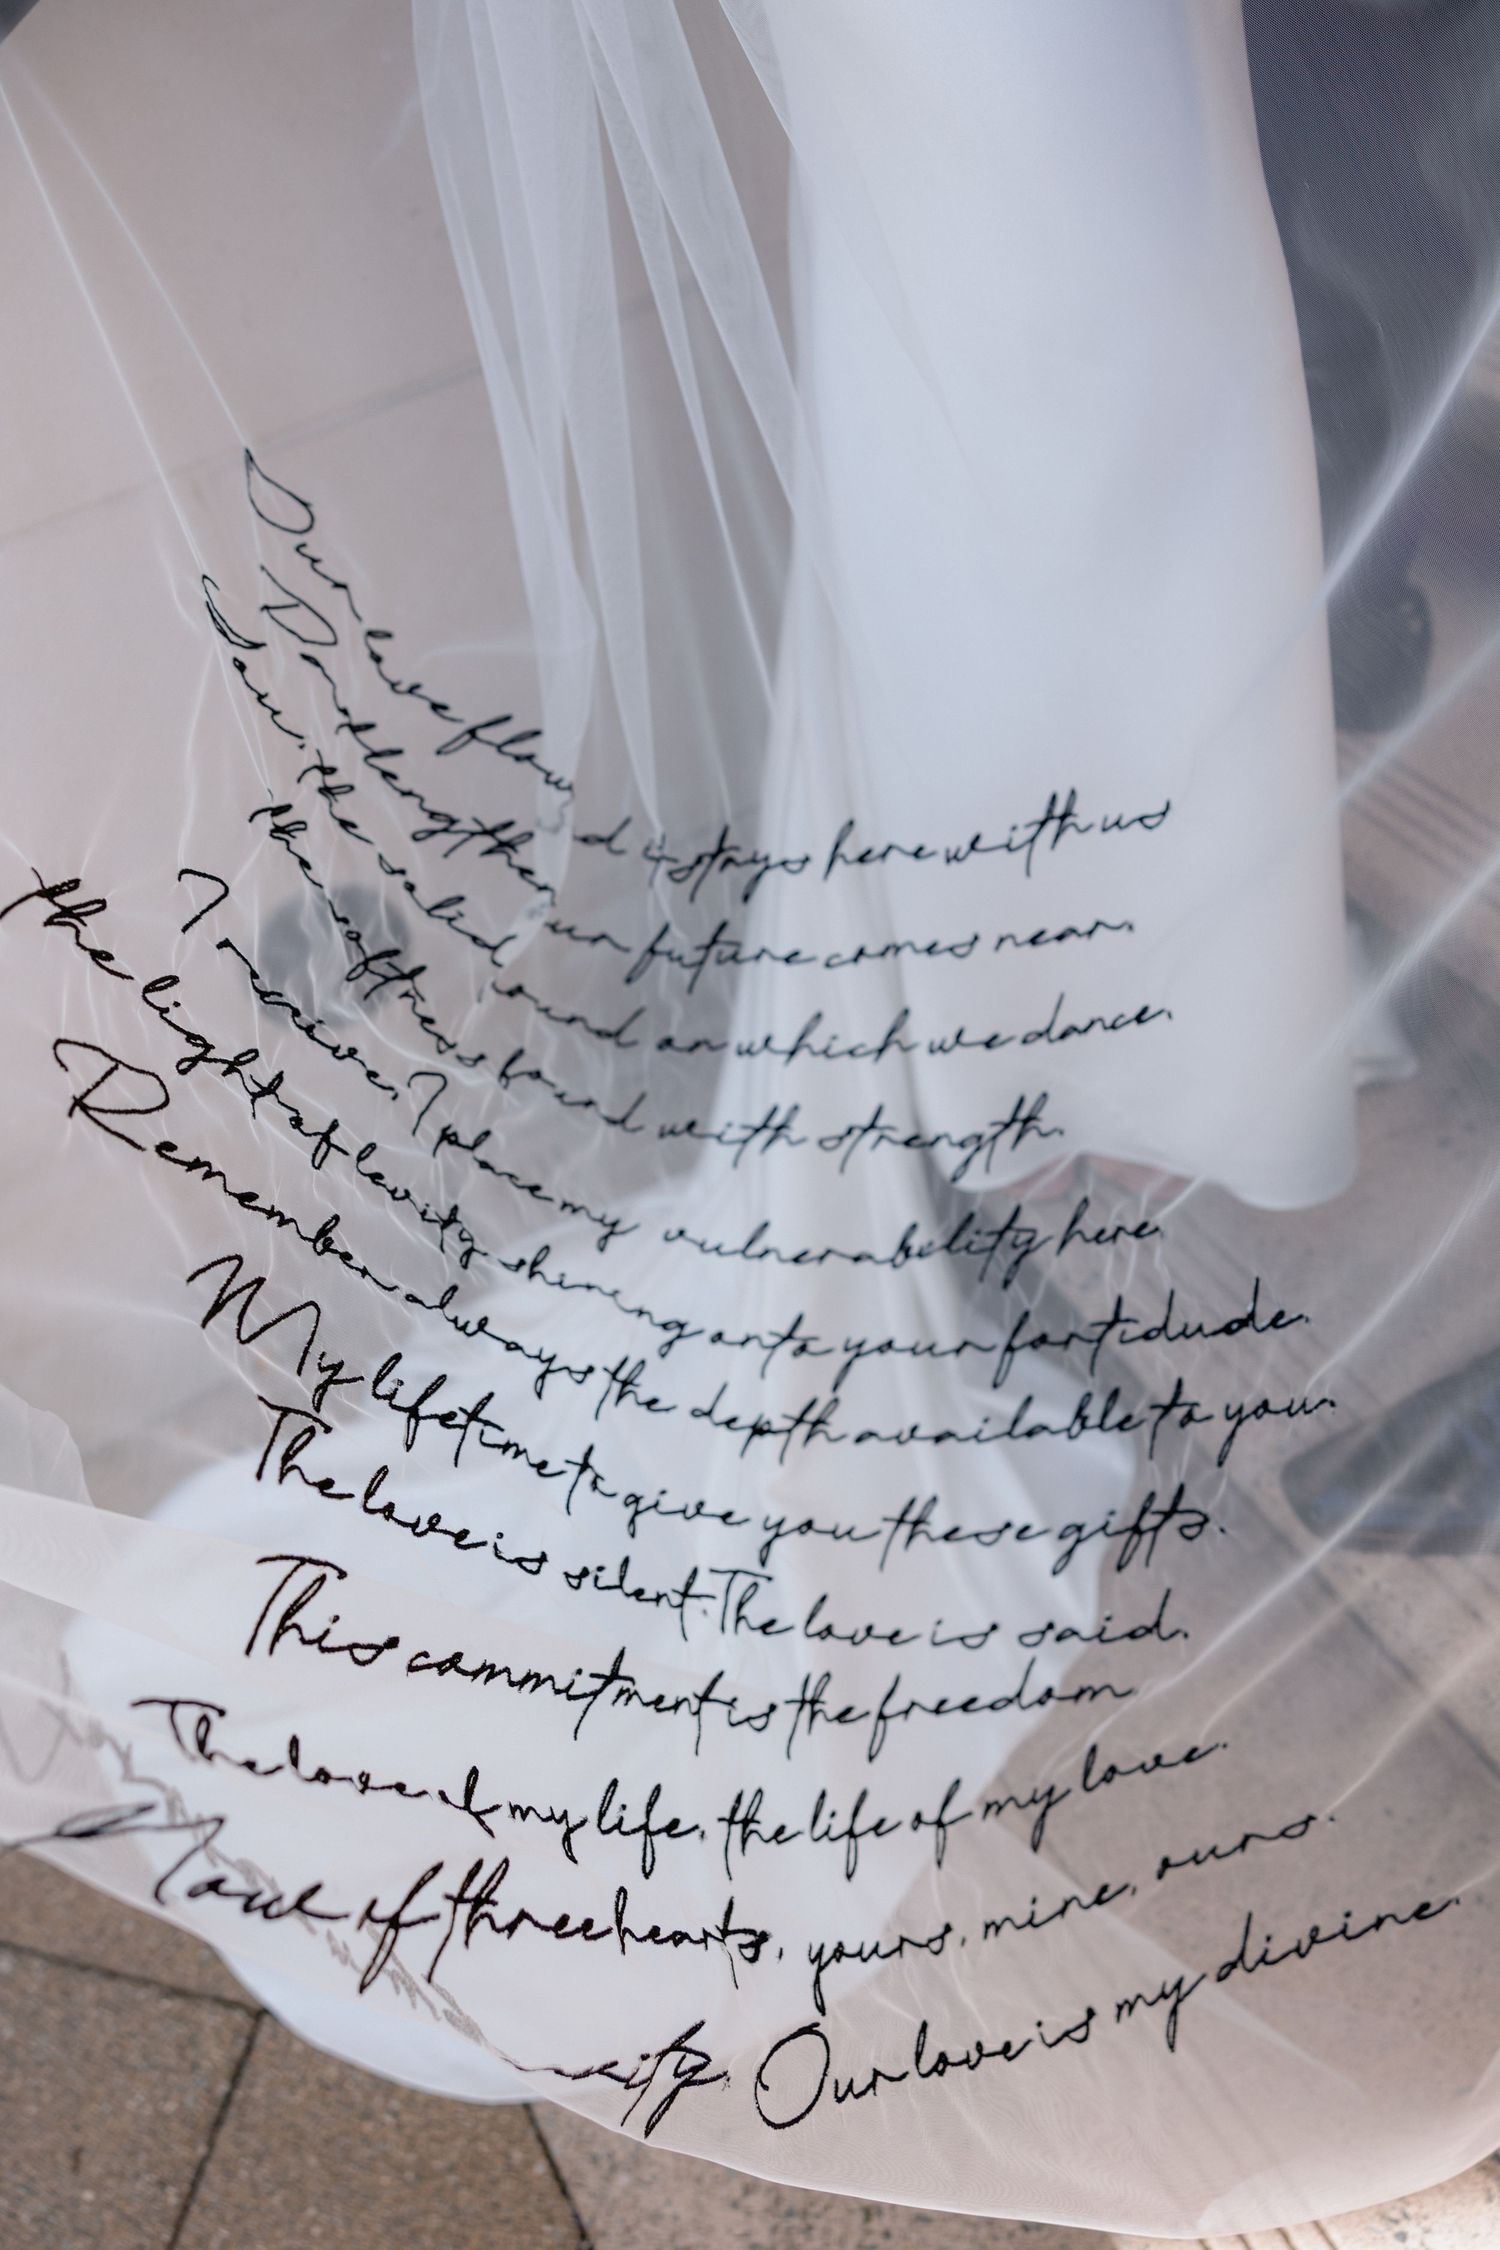 Our love flows and it stays here with us
Don't lengthen our future comes near.
You, the solid ground on which we dance.
the softness found with strength.
I receive. I place my vulnerability here.
the light of levity shining onto your fortidude.
Remember always the depth available to you.
My lifetime to give you these gifts.
The love is silent. The love is said.
This commitment is the freedom
The love of my life, the life of my love.
of three hearts, yours, mine, ours.
Our love is my divine.